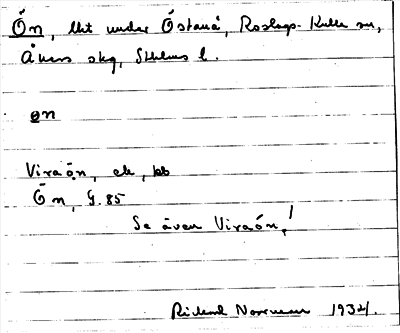 Ön, lht under Östanå, Roslags-Kulla sn,
Åkers skg, Sthlms l.
øn
Viraön, ek, kb
Ön, G.85
Se även Viraön!
Rickard Norrman 1934.